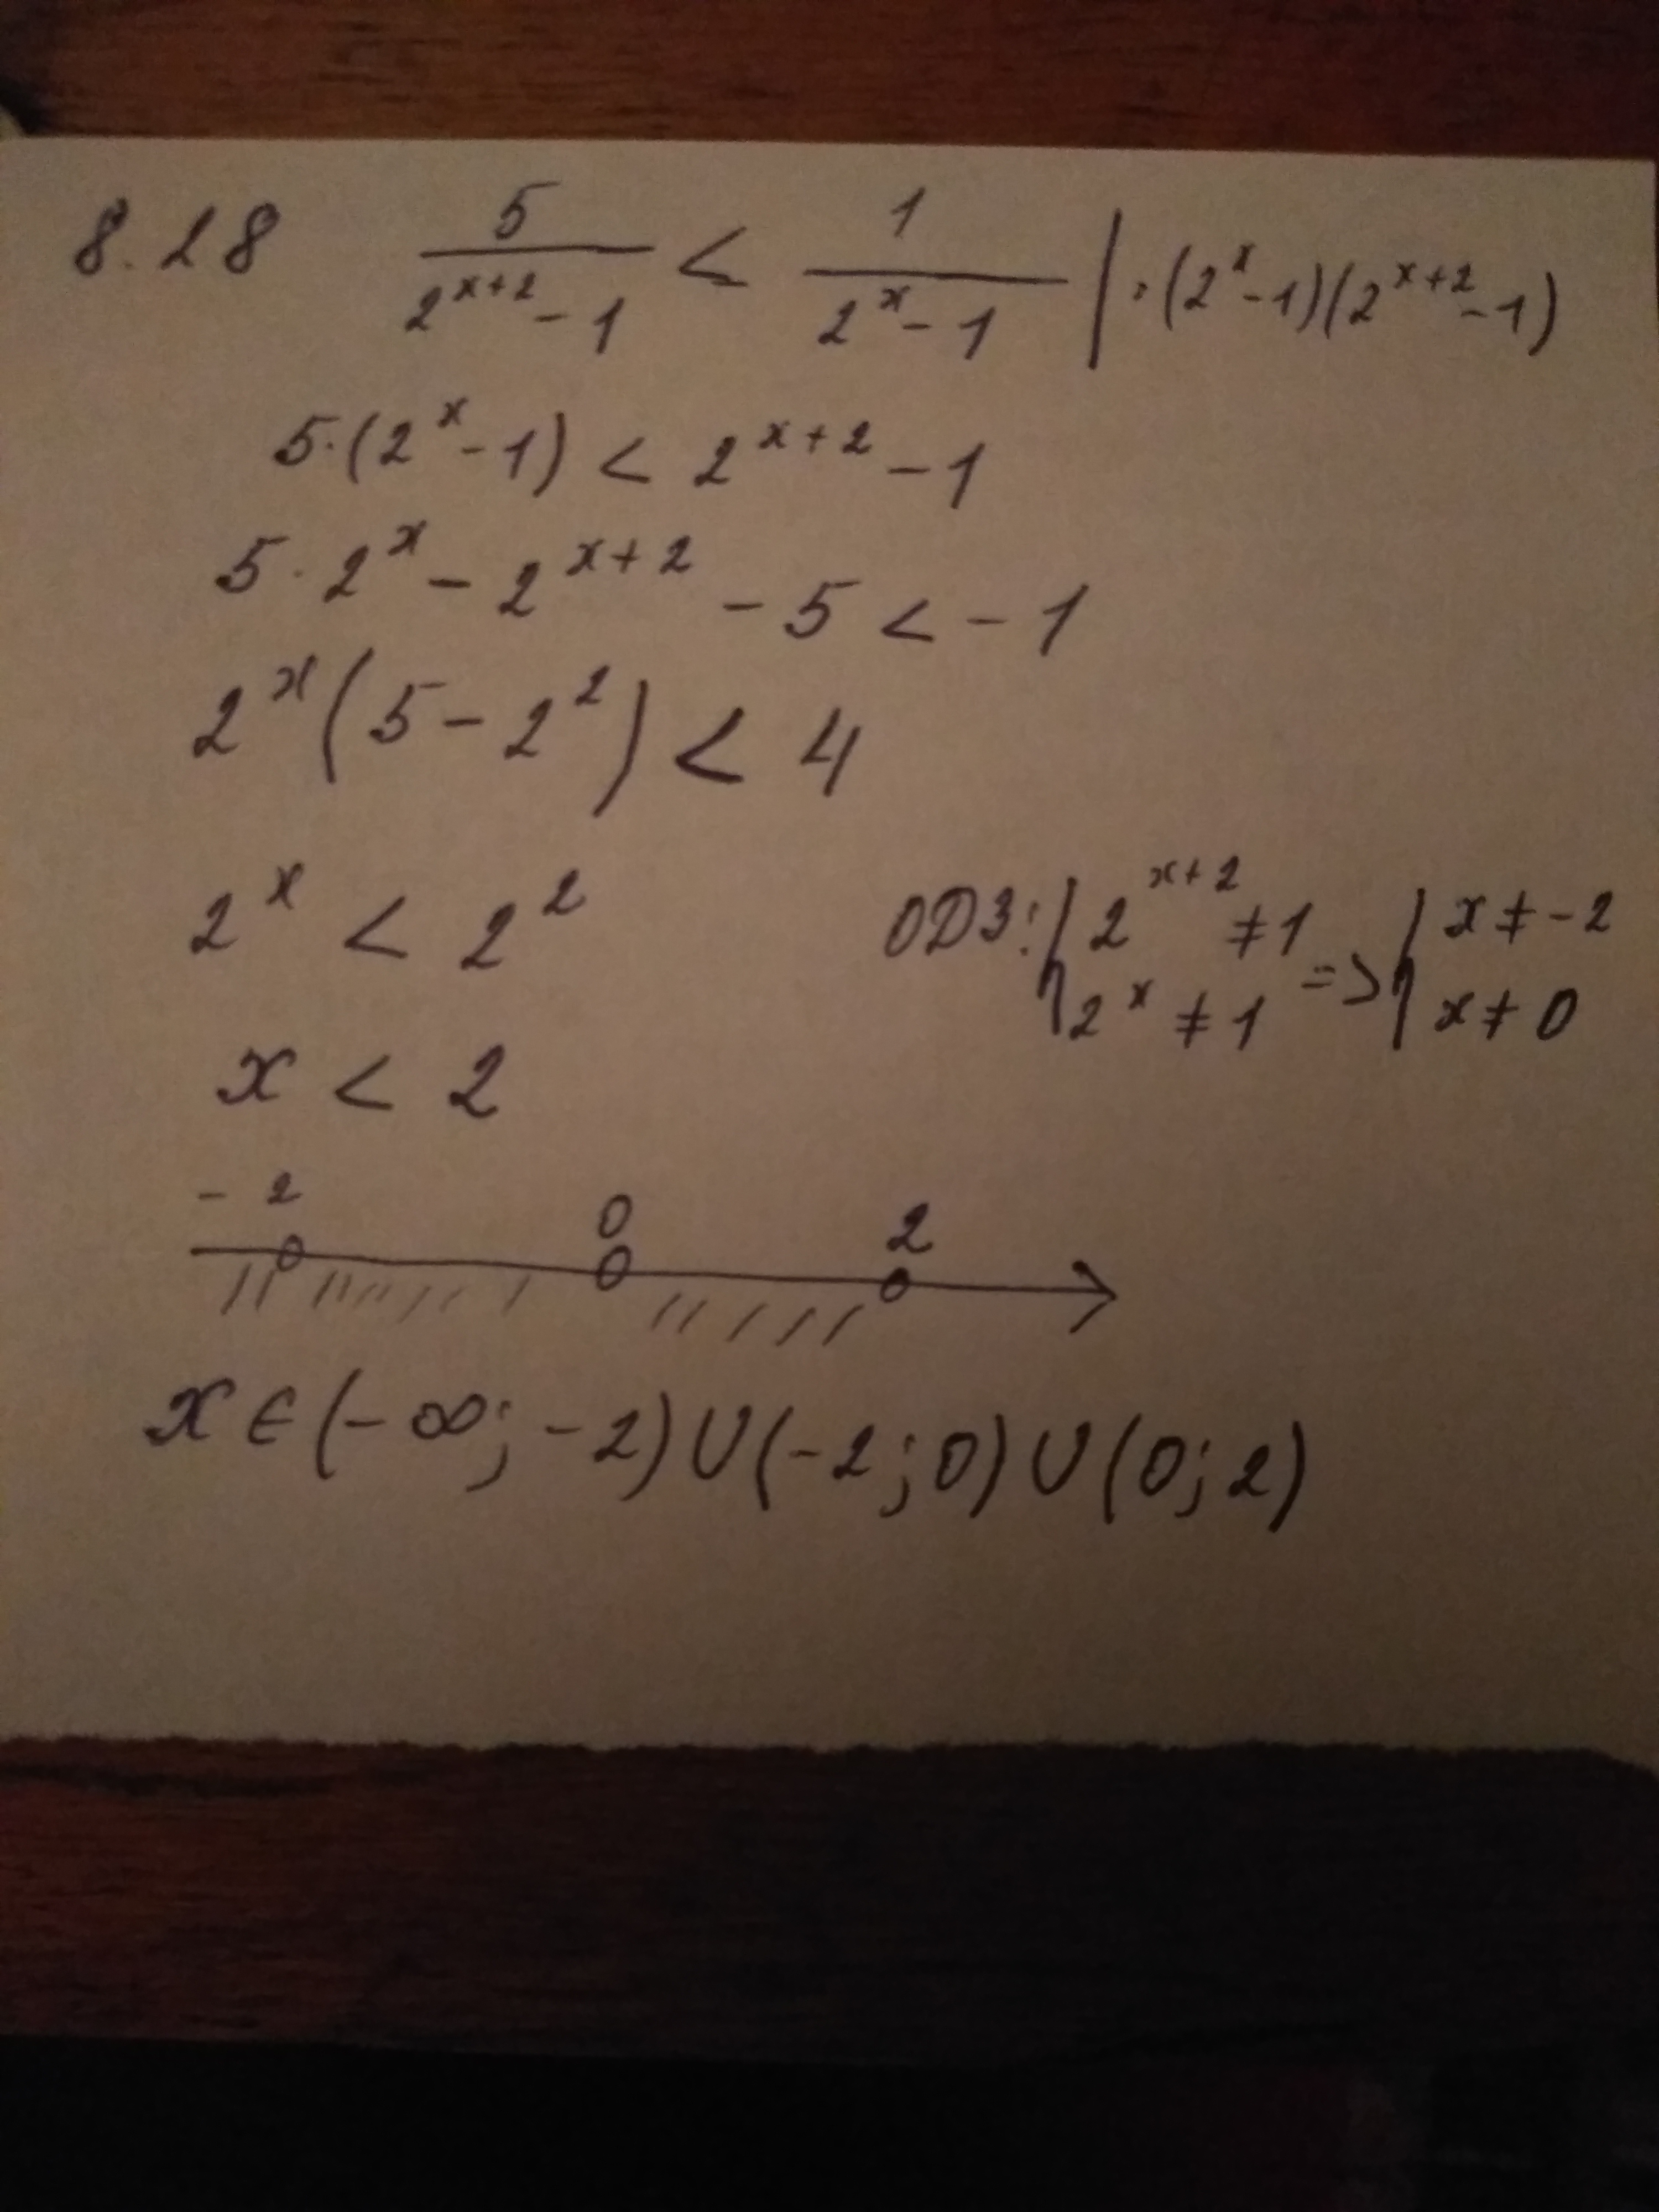 8.28 5/(2^(x+2) - 1) < 1/(2^x - 1) | · (2^x - 1)(2^(x+2) - 1)
5·(2^x - 1) < 2^(x+2) - 1
5 · 2^x - 2^(x+2) - 5 < -1
2^x (5 - 2^2) < 4
2^x < 2^2
ОДЗ: { 2^(x+2) ≠ 1 2^x ≠ 1 => { x ≠ -2 x ≠ 0
x < 2
-2 0 2
x ∈ (-∞; -2) ∪ (-2; 0) ∪ (0; 2)